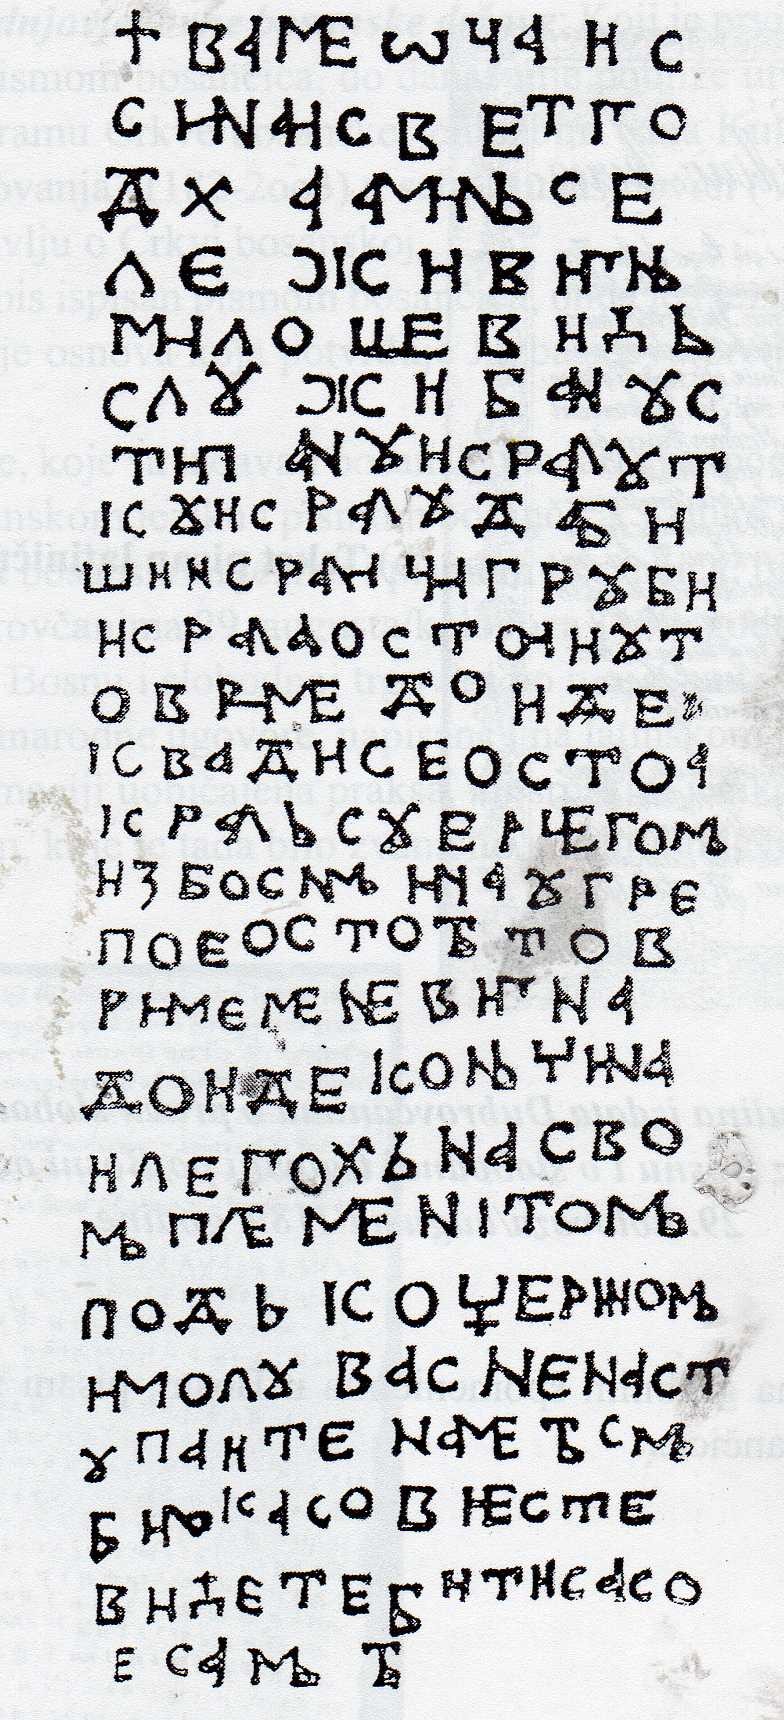 + ВАИМЕ ѠЧА И С
СИНА И СВЕТГО
ДХ А АМИНЬ СЕ
ЛЕ ЖИ ВИГНЬ
МИЛОШЕВИЋЬ
СЛУЖИ БАНУ С
ТИПАНУ И КРАЛУ Т
КУ И КРАЛУ ДАБИ
ШИ И КРАЛИЧИ ГРУБИ
И КРАЛА ОСТОИУ Т
О ВРИМЕ ДОИДЕ И
СВАДИ СЕ ОСТОА
КРАЛЬ С УЕРЧЕГОМЬ
И З БОСНМЬ И НА УГРЕ
ПОЕ ОСТОѢ ТО В
РИМЕ МЕНЕ ВИГНА
ДОИДЕ КОНЬЧИНА
И ЛЕГОХЬ НА СВО
МЬ ПЛЕМЕНІТОМЬ
ПОДЬ КОЧЕРИНОМЬ
И МОЛУ ВАС НЕ НАСТ
УПАИТЕ НА МЕ Ѣ СМЬ
БИЛЬ КАКО ВИ ЕСТЕ
ВИ ЋЕТЕ БИТИ КАКО
ЕСАМЬ Ѣ